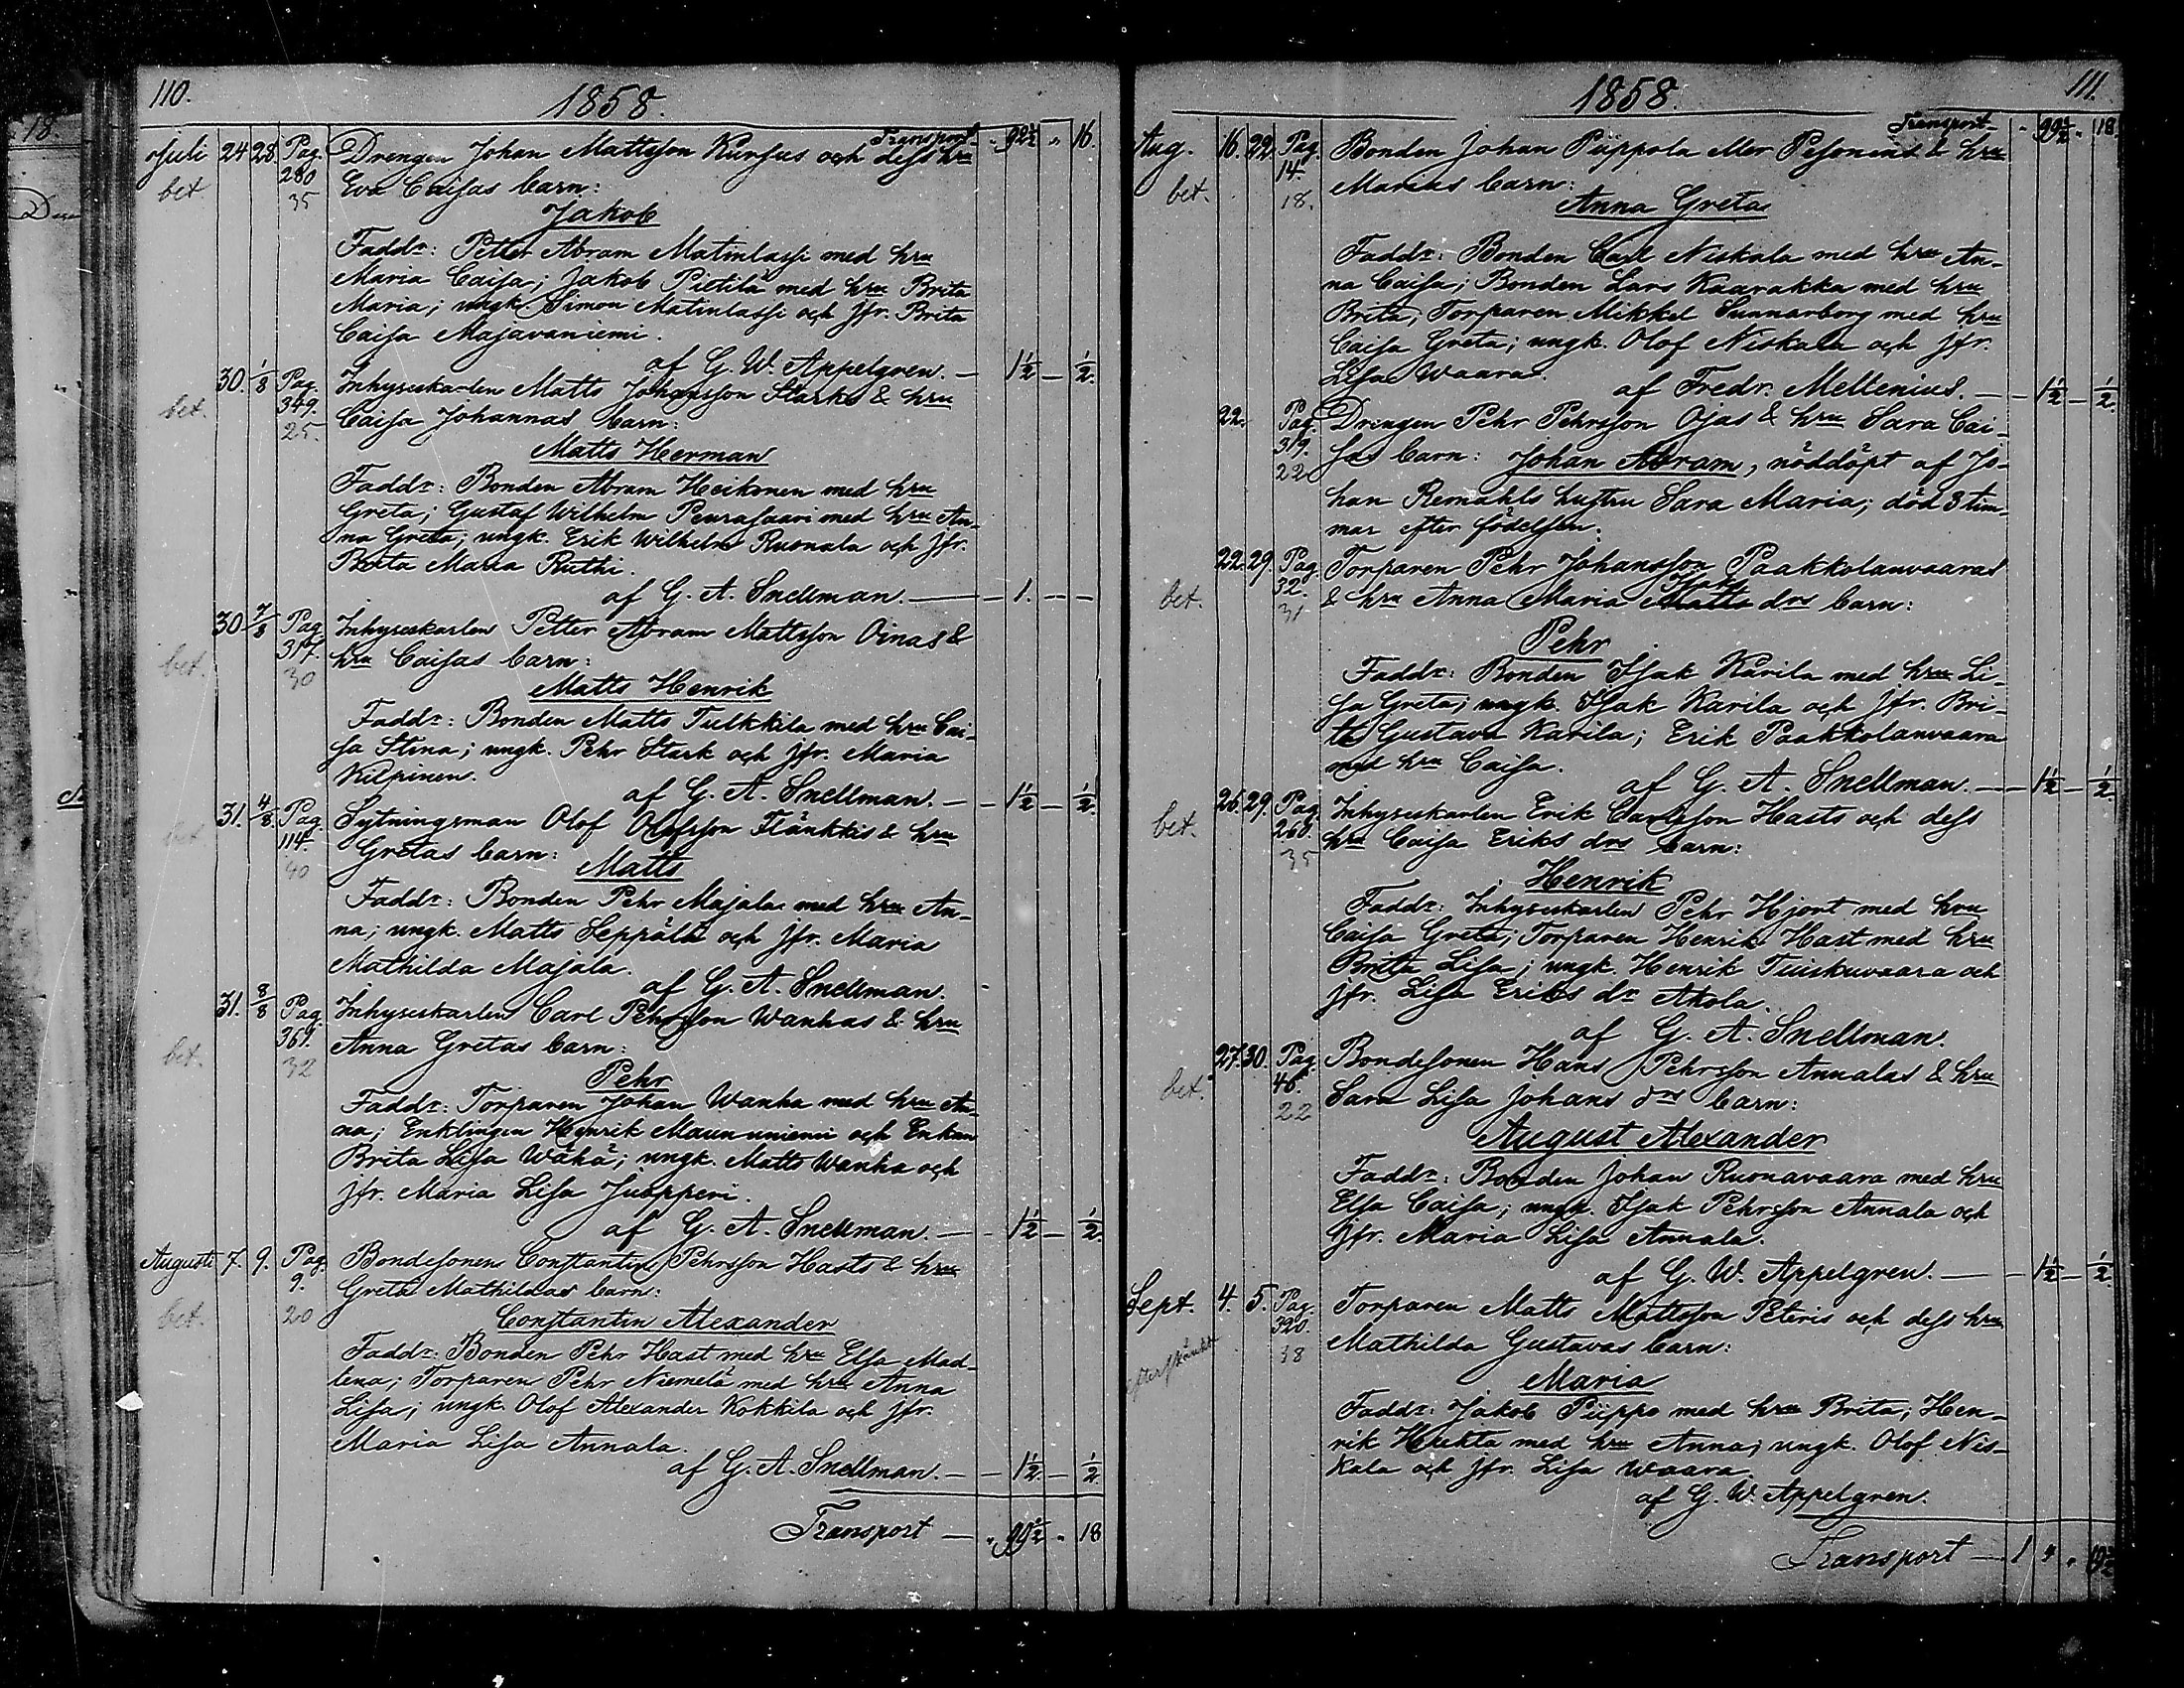 110.
1858.
Transport 92½ " 16.
Juli 24 28 Pag. Drengen Johan Mattsson Kursus och dess hru
bet. 280 Eva Caisas barn:
35
Jakob
Faddr: Petter Abram Matinlassi med hru
Maria Caisa; Jakob Pietilä med hru Brita
Maria; ungk. Simon Matinlassi och Jfr. Brita
Caisa Majavaniemi.
af G. W. Appelgren. — 1½ — ½.
30. 1/8 Pag. Inhyseskarlen Matts Johansson Starks & hru
bet. 349. Caisa Johannas barn:
25.
Matts Herman
Faddr: Bonden Abram Heikonen med hru
Greta; Gustaf Wilhelm Peurasaari med hru An-
na Greta; ungk. Erik Wilhelm Ruonala och Jfr.
Brita Maria Ruthi.
af G. A. Snellman. — 1. — —
30 7/8 Pag. Inhyseskarlen Petter Abram Mattsson Oinas &
bet. 317. hru Caisas barn:
30
Matts Henrik
Faddr: Bonden Matts Tulkkila med hru Cai-
sa Stina; ungk. Pehr Stark och Jfr. Maria
Kilpinen.
af G. A. Snellman. — 1½ — ½.
31. 4/8. Pag. Sytningsman Olof Olofsson Flänkkis & hru
bet 114. Gretas barn:
40
Matts
Faddr: Bonden Pehr Majala med hru An-
na; ungk. Matts Seppälä och Jfr. Maria
Mathilda Majala.
af G. A. Snellman. -
31. 8/8 Pag. Inhyseskarlen Carl Pehrsson Wanhas & hru
bet. 369. Anna Gretas barn:
32
Pehr
Faddr: Torparen Johan Wanha med hru An-
na; Enklingen Henrik Maununiemi och Enkan
Brita Lisa Wähä; ungk. Matts Wanha och
Jfr. Maria Lisa Juopperi.
af G. A. Snellman. — 1½ — ½.
Augusti 7. 9. Pag. Bondesonen Constantin Pehrsson Hasts & hru
9. Greta Mathildas barn:
bet. 20
Constantin Alexander
Faddr: Bonden Pehr Hast med hru Elsa Mad-
lena; Torparen Pehr Niemelä med hru Anna
Lisa; ungk. Olof Alexander Kokkila och Jfr.
Maria Lisa Annala.
af G. A. Snellman. — 1½ — ½
Transport — " 99½ " 18
1858.
111.
Transport " 99½ " 18.
Aug. 16. 22. Pag. Bonden Johan Piippola eller Pesonens & hru
14. Marias barn:
bet. 18.
Anna Greta
Faddr: Bonden Carl Niskala med hru An-
na Caisa; Bonden Lars Kaarakka med hru
Brita; Torparen Mikkel Sunnarborg med hru
Caisa Greta; ungk. Olof Niskala och Jfr.
Lisa Waara.
af Fredr. Mellenius. — 1½ — ½.
22. Pag. Drengen Pehr Pehrsson Ojas & hru Sara Cai-
319. sas barn: Johan Abram, nöddöpt af Jo-
22 han Remahls hustru Sara Maria; död 3 tim-
mar efter födelsen.
22. 29. Pag. Torparen Pehr Johansson Paakkolanvaaras
Hans
bet. 32. & hru Anna Maria Matts drs barn:
31
Pehr
Faddr: Bonden Isak Karila med hru Li-
sa Greta; ungk. Isak Karila och Jfr. Bri-
ta Gustava Karila; Erik Paakkolanvaara
med hru Caisa.
af G. A. Snellman. — 1½ — ½.
26. 29. Pag. Inhyseskarlen Erik Carlsson Hasts och dess
bet. 260. hru Caisa Eriks drs barn:
35
Henrik
Faddr: Inhyseskarlen Pehr Hjort med hru
Caisa Greta; Torparen Henrik Hast med hru
Brita Lisa; ungk. Henrik Tuiskuvaara och
jfr. Lisa Eriks dr Akola.
af G. A. Snellman.
27. 30. Pag. Bondesonen Hans Pehrsson Annalas & hru
bet. 46. Sara Lisa Johans drs barn:
22
August Alexander
Faddr: Bonden Johan Ruonavaara med hru
Elsa Caisa; ungk. Isak Pehrsson Annala och
Jfr. Maria Lisa Annala.
af G. W. Appelgren. — 1½ — ½.
Sept. 4. 5. Pag. Torparen Matts Mattsson Peteris och dess hru
320. Mathilda Gustavas barn:
efterskänkt 18
Maria
Faddr: Jakob Piippo med hru Brita; Hen-
rik Hrekta med hru Anna; ungk. Olof Nis-
kala och Jfr. Lisa Waara.
af G. W. Appelgren.
Transport — 1 4 " 19½